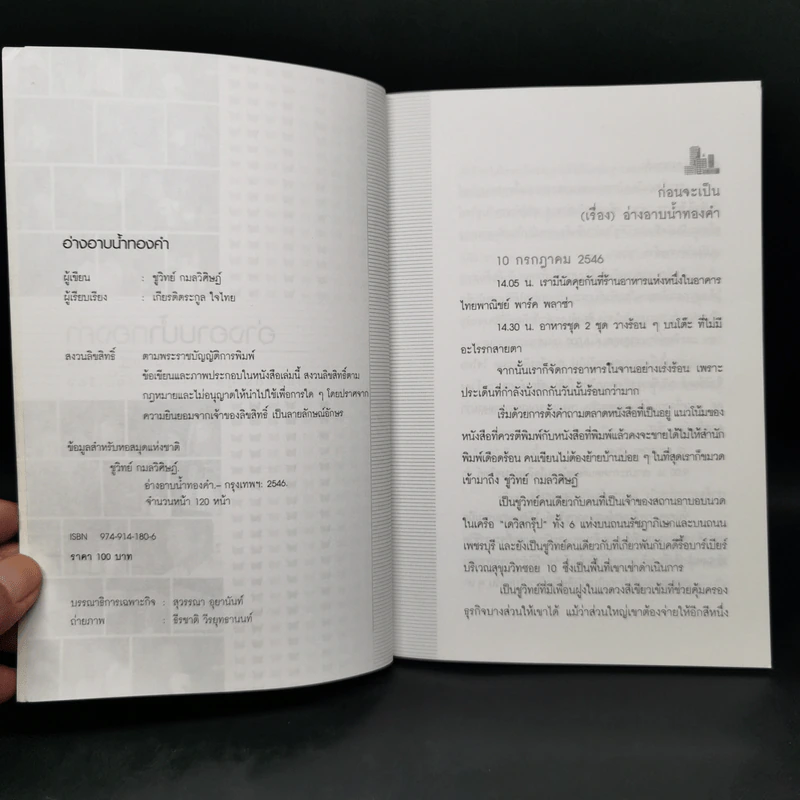 อ่างอาบน้ำทองคำ
ผู้เขียน : ชูวิทย์ กมลวิศิษฎ์
ผู้เรียบเรียง : เกียรติตระกูล ใจไทย
สงวนลิขสิทธิ์ ตามพระราชบัญญัติการพิมพ์
ข้อเขียนและภาพประกอบในหนังสือเล่มนี้ สงวนลิขสิทธิ์ตาม
กฎหมายและไม่อนุญาตให้นำไปใช้เพื่อการใด ๆ โดยปราศจาก
ความยินยอมจากเจ้าของลิขสิทธิ์ เป็นลายลักษณ์อักษร
ข้อมูลสำหรับหอสมุดแห่งชาติ
ชูวิทย์ กมลวิศิษฎ์.
อ่างอาบน้ำทองคำ.– กรุงเทพฯ: 2546.
จำนวนหน้า 120 หน้า
ISBN 974-914-180-6
ราคา 100 บาท
บรรณาธิการเฉพาะกิจ : สุวรรณา อุยานันท์
ถ่ายภาพ : ธีรชาติ วีรยุทธานนท์
ก่อนจะเป็น
(เรื่อง) อ่างอาบน้ำทองคำ
10 กรกฎาคม 2546
14.05 น. เรามีนัดคุยกันที่ร้านอาหารแห่งหนึ่งในอาคาร
ไทยพาณิชย์ พาร์ค พลาซ่า
14.30 น. อาหารชุด 2 ชุด วางร้อน ๆ บนโต๊ะ ที่ไม่มี
อะไรรกสายตา
จากนั้นเราก็จัดการอาหารในจานอย่างเร่งร้อน เพราะ
ประเด็นที่กำลังนั่งถกกันวันนั้นร้อนกว่ามาก
เริ่มด้วยการตั้งคำถามตลาดหนังสือที่เป็นอยู่ แนวโน้มของ
หนังสือที่ควรตีพิมพ์กับหนังสือที่พิมพ์แล้วคงจะขายได้ไม่ให้สำนัก
พิมพ์เดือดร้อน คนเขียนไม่ต้องย้ายบ้านบ่อย ๆ ในที่สุดเราก็ขมวด
เข้ามาถึง ชูวิทย์ กมลวิศิษฎ์
เป็นชูวิทย์คนเดียวกับคนที่เป็นเจ้าของสถานอาบอบนวด
ในเครือ "เดวิสกรุ๊ป" ทั้ง 6 แห่งบนถนนรัชฎาภิเษกและบนถนน
เพชรบุรี และยังเป็นชูวิทย์คนเดียวกับที่เกี่ยวพันกับคดีรื้อบาร์เบียร์
บริเวณสุขุมวิทซอย 10 ซึ่งเป็นพื้นที่เขาเช่าดำเนินการ
เป็นชูวิทย์ที่มีเพื่อนฝูงในแวดวงสีเขียวเข้มที่ช่วยคุ้มครอง
ธุรกิจบางส่วนให้เขาได้ แม้ว่าส่วนใหญ่เขาต้องจ่ายให้อีกสีหนึ่ง